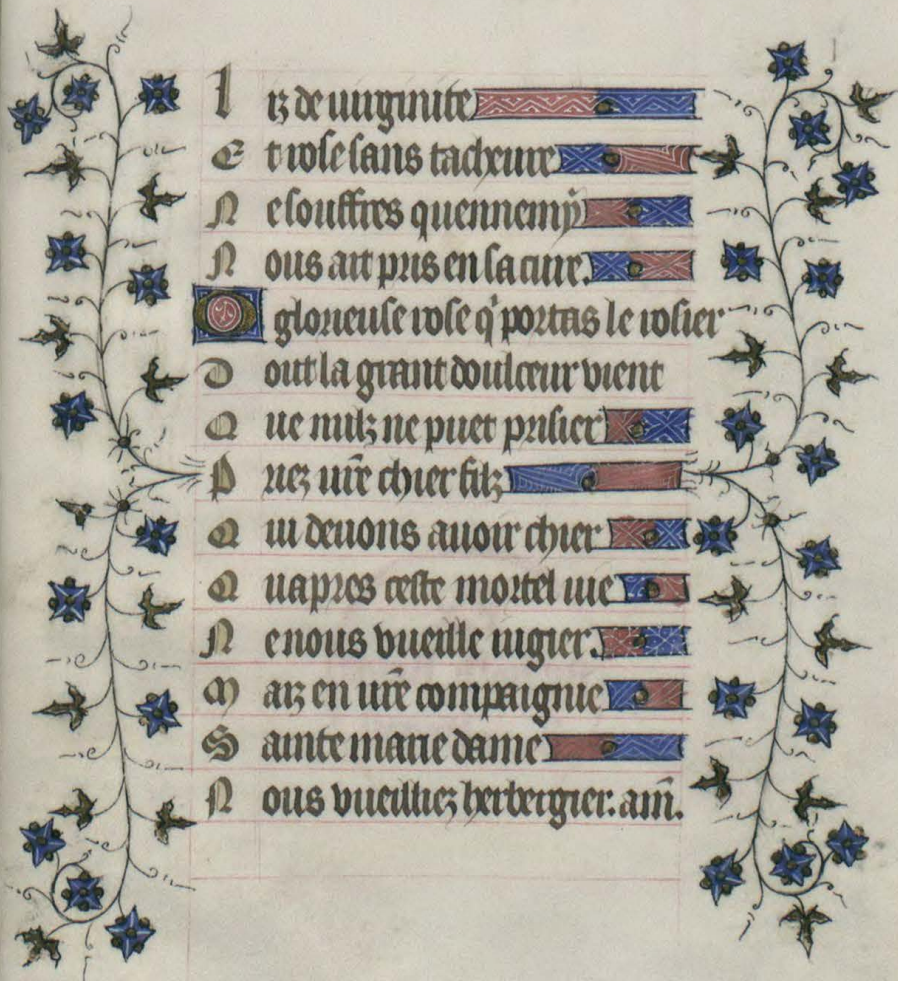 l iz de uirginite
E t rose sans tacheure
N e souffres quennemy
N ous ait pris en sa cure.
O glorieuse rose q̇ portas le rosier
D out la grant doulceur vient
Q ue nulz ne puet prisier
P riez vr̃e chier filz
Q ui deuons auoir chier
Q uapres ceste mortel uie
N e nous vueille iugier.
M aiz en vr̃e compaignie
S ainte marie dame
N ous vueilliez herbergier. am̃.